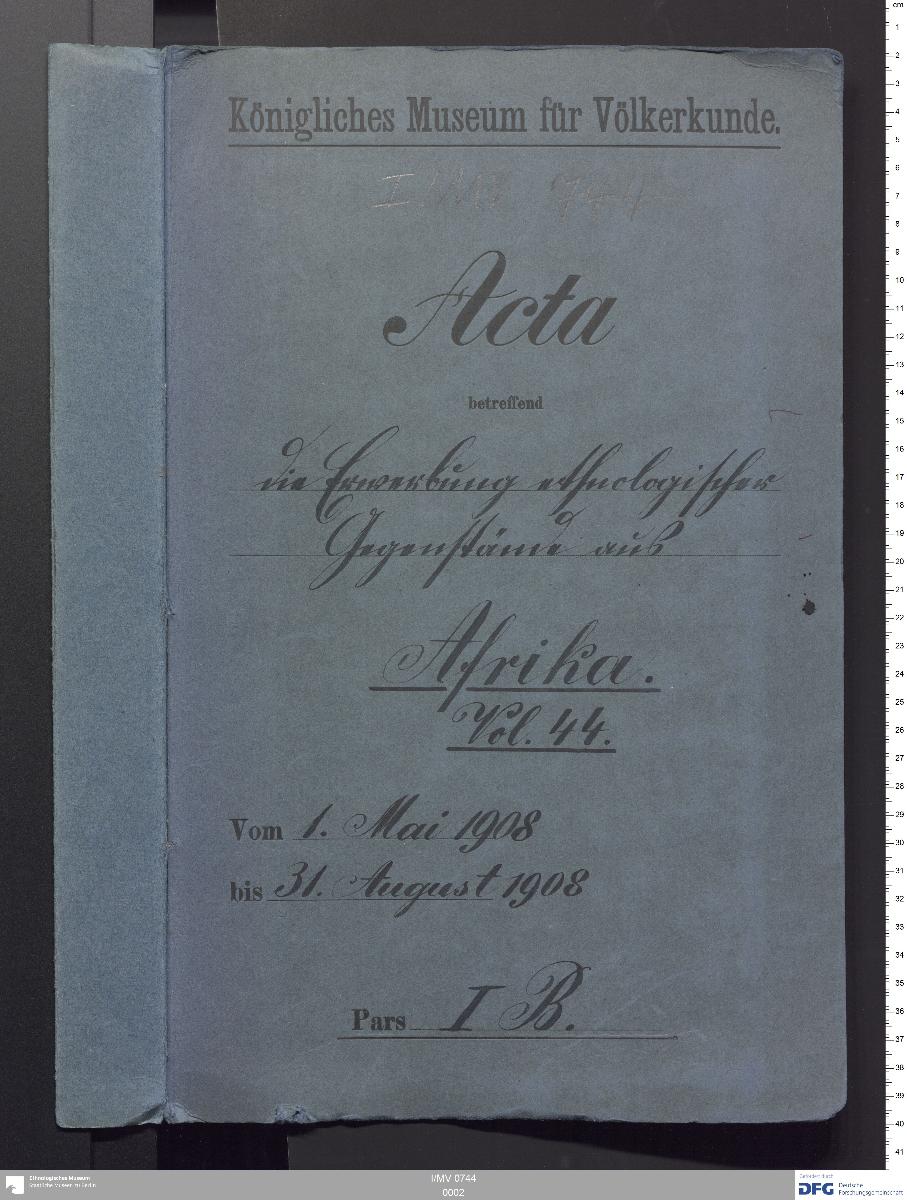 Königliches Museum für Völkerkunde.
I/MV 744
Acta
betreffend
die Erwerbung ethnologischer
Gegenstände aus
Afrika.
Vol. 44.
Vom 1. Mai 1908
bis 31. August 1908
Pars I B.
Ethnologisches Museum
Staatliche Museen zu Berlin
I/MV 0744
0002
Gefördert durch
DFG Deutsche
Forschungsgemeinschaft
cm
1
2
3
4
5
6
7
8
9
10
11
12
13
14
15
16
17
18
19
20
21
22
23
24
25
26
27
28
29
30
31
32
33
34
35
36
37
38
39
40
41